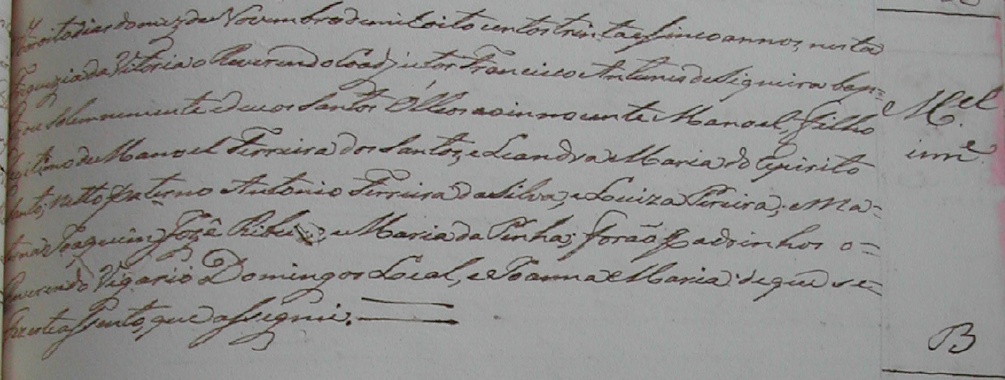 oito dias do mez de Novembro de mil oito centos trinta e sinco annos, nesta
Freuzia da Vitoria o Reverendo Coadjutor Francisco Antonio de Siqueira bap=
tizou solemnemente e deu os Santos Olleos ao innocente Manoel, filho
legitimo de Manoel Ferreira dos Santos, e Leandra Maria do Espirito
Santo; netto paterno Antonio Ferreira da Silva, e Louiza Pereira; e Ma=
terna Joaquim Jozê Ribeiro, e Maria da Penha; forão Padrinhos o=
Reverendo Vigario Domingos Leal, e Joanna Maria: de que se=
fez este assento, que assegnei.
M.el
inn.e
B